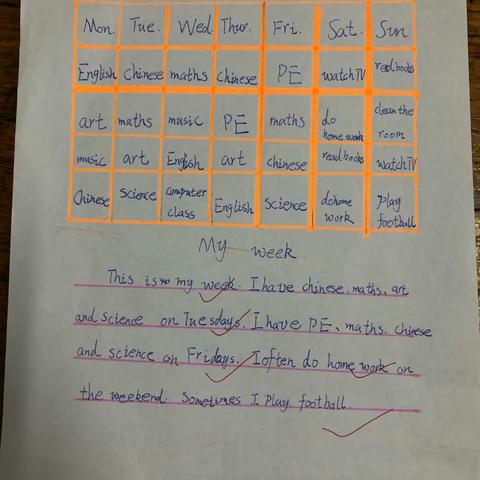 Mon. Tue. Wed Thur. Fri. Sat. Sun.
English Chinese maths Chinese PE watch TV read books
art maths music PE maths do home work clean the room
music art English art chinese read books watch TV
Chinese science computer class English science do home work play football
My week
This is my week. I have chinese, maths, art
and science on Tuesdays. I have PE、maths. chinese
and science on Fridays. I often do home work on
the weekend. Sometimes I play football.